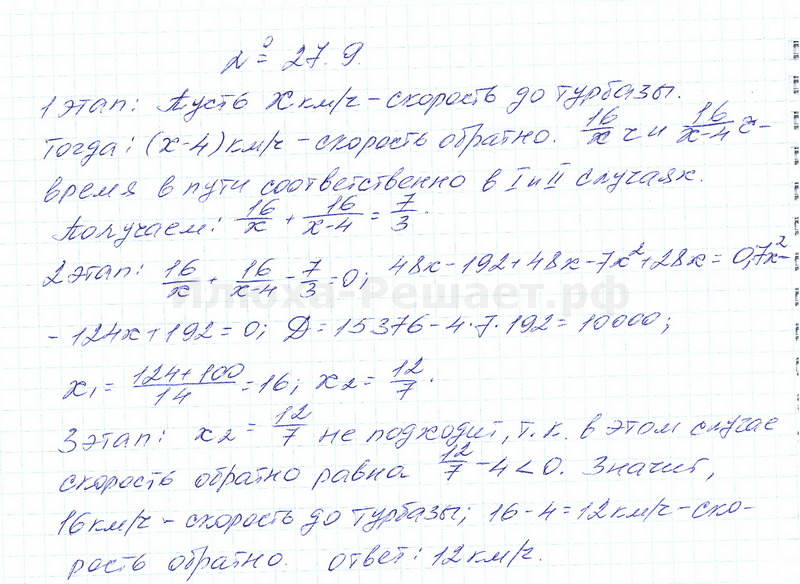 № 27.9.
1 этап: Пусть x км/ч – скорость до турбазы.
Тогда: (x-4) км/ч – скорость обратно. 16/x ч и 16/(x-4) ч –
время в пути соответственно в I и II случаях.
Получаем: 16/x + 16/(x-4) = 7/3.
2 этап: 16/x + 16/(x-4) - 7/3 = 0; 48x-192+48x-7x²+28x=0; 7x²-
Илюха-Решает.рф
-124x+192=0; D=15376-4·7·192=10000;
x₁= (124+100)/14 =16; x₂= 12/7.
3 этап: x₂ = 12/7 не подходит, т.к. в этом случае
скорость обратно равна 12/7 -4<0. Значит,
16 км/ч – скорость до турбазы; 16-4=12 км/ч – ско-
рость обратно. ответ: 12 км/ч.